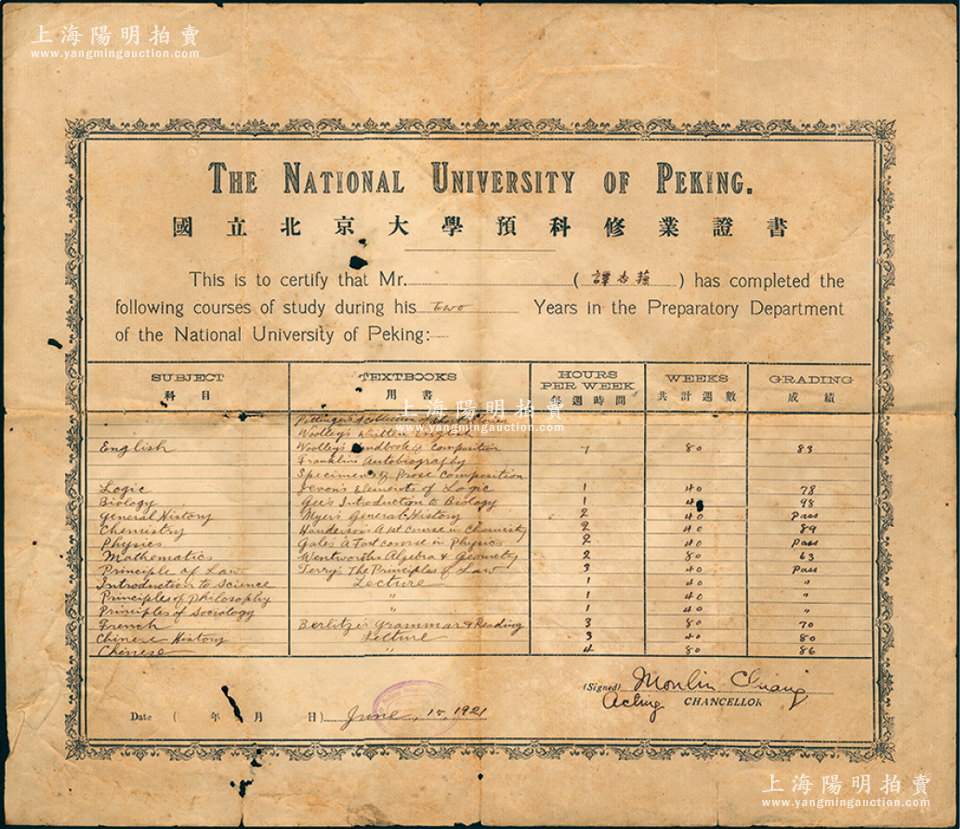 上海陽明拍賣
www.yangmingauction.com
THE NATIONAL UNIVERSITY OF PEKING.
國立北京大學預科修業證書
This is to certify that Mr. (譚 ) has completed the
following courses of study during his two Years in the Preparatory Department
of the National University of Peking:
SUBJECT TEXTBOOKS HOURS PER WEEK WEEKS GRADING
科目 用書 每週時間 共計週數 成績
上海陽明拍賣
www.yangmingauction.com
Collection of
Woolley's Written English
English Woolley's Handbook of Composition 7 80 83
Franklin's Autobiography
Specimens of Prose Composition
Logic Jevon's Elements of Logic 1 40 78
Biology Gee's Introduction to Biology 1 40 98
General History Myer's General History 2 40 Pass
Chemistry Henderson's A 1st course in Chemistry 2 40 89
Physics Gale's A First course in Physics 2 40 Pass
Mathematics Wentworth's Algebra & Geometry 2 80 63
Principle of Law Terry's The Principles of Law 3 40 Pass
Introduction to Science Lecture 1 40 "
Principles of Philosophy " 1 40 "
Principles of Sociology " 1 40 "
French Berlitz's Grammar & Reading 3 80 70
Chinese History Lecture 3 40 80
Chinese " 4 80 86
(Signed) Monlin Chiang
Acting CHANCELLOR
Date ( 年 月 日) June, 15, 1921
上海陽明拍賣
www.yangmingauction.com